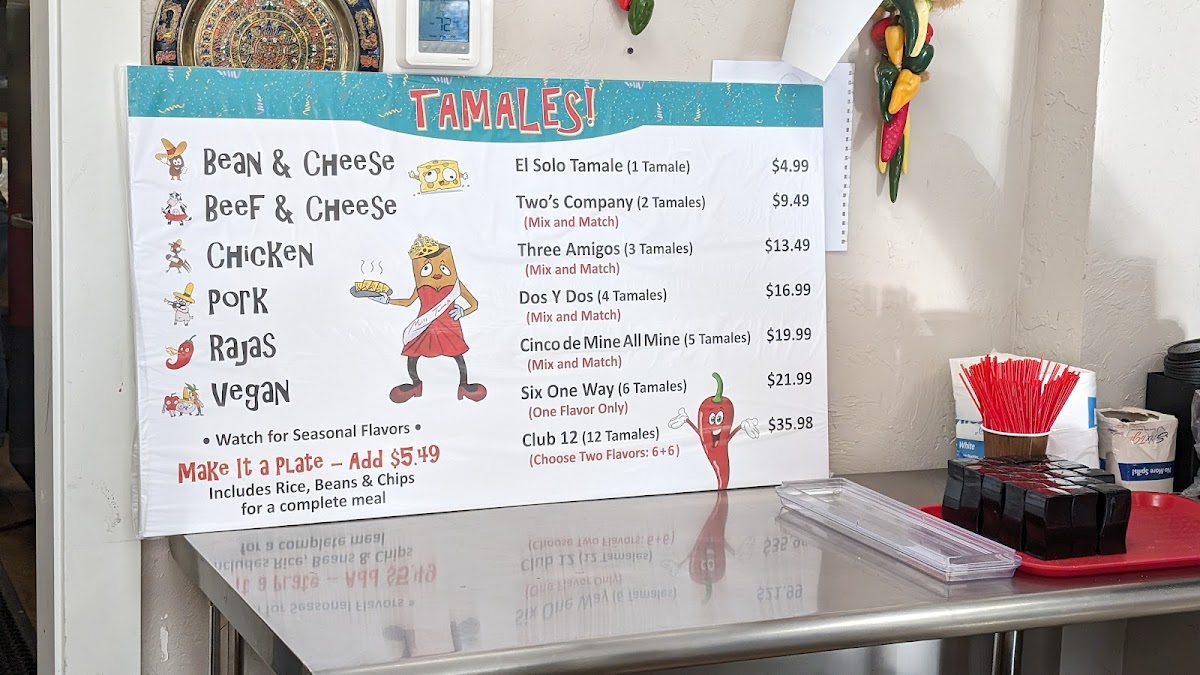 72
TAMALES!
Bean & Cheese
Beef & Cheese
Chicken
Pork
Rajas
Vegan
• Watch for Seasonal Flavors •
Make It a Plate – Add $5.49
Includes Rice, Beans & Chips
for a complete meal
El Solo Tamale (1 Tamale) $4.99
Two's Company (2 Tamales) $9.49
(Mix and Match)
Three Amigos (3 Tamales) $13.49
(Mix and Match)
Dos Y Dos (4 Tamales) $16.99
(Mix and Match)
Cinco de Mine All Mine (5 Tamales) $19.99
(Mix and Match)
Six One Way (6 Tamales) $21.99
(One Flavor Only)
Club 12 (12 Tamales) $35.98
(Choose Two Flavors: 6+6)
White
No More Spills!